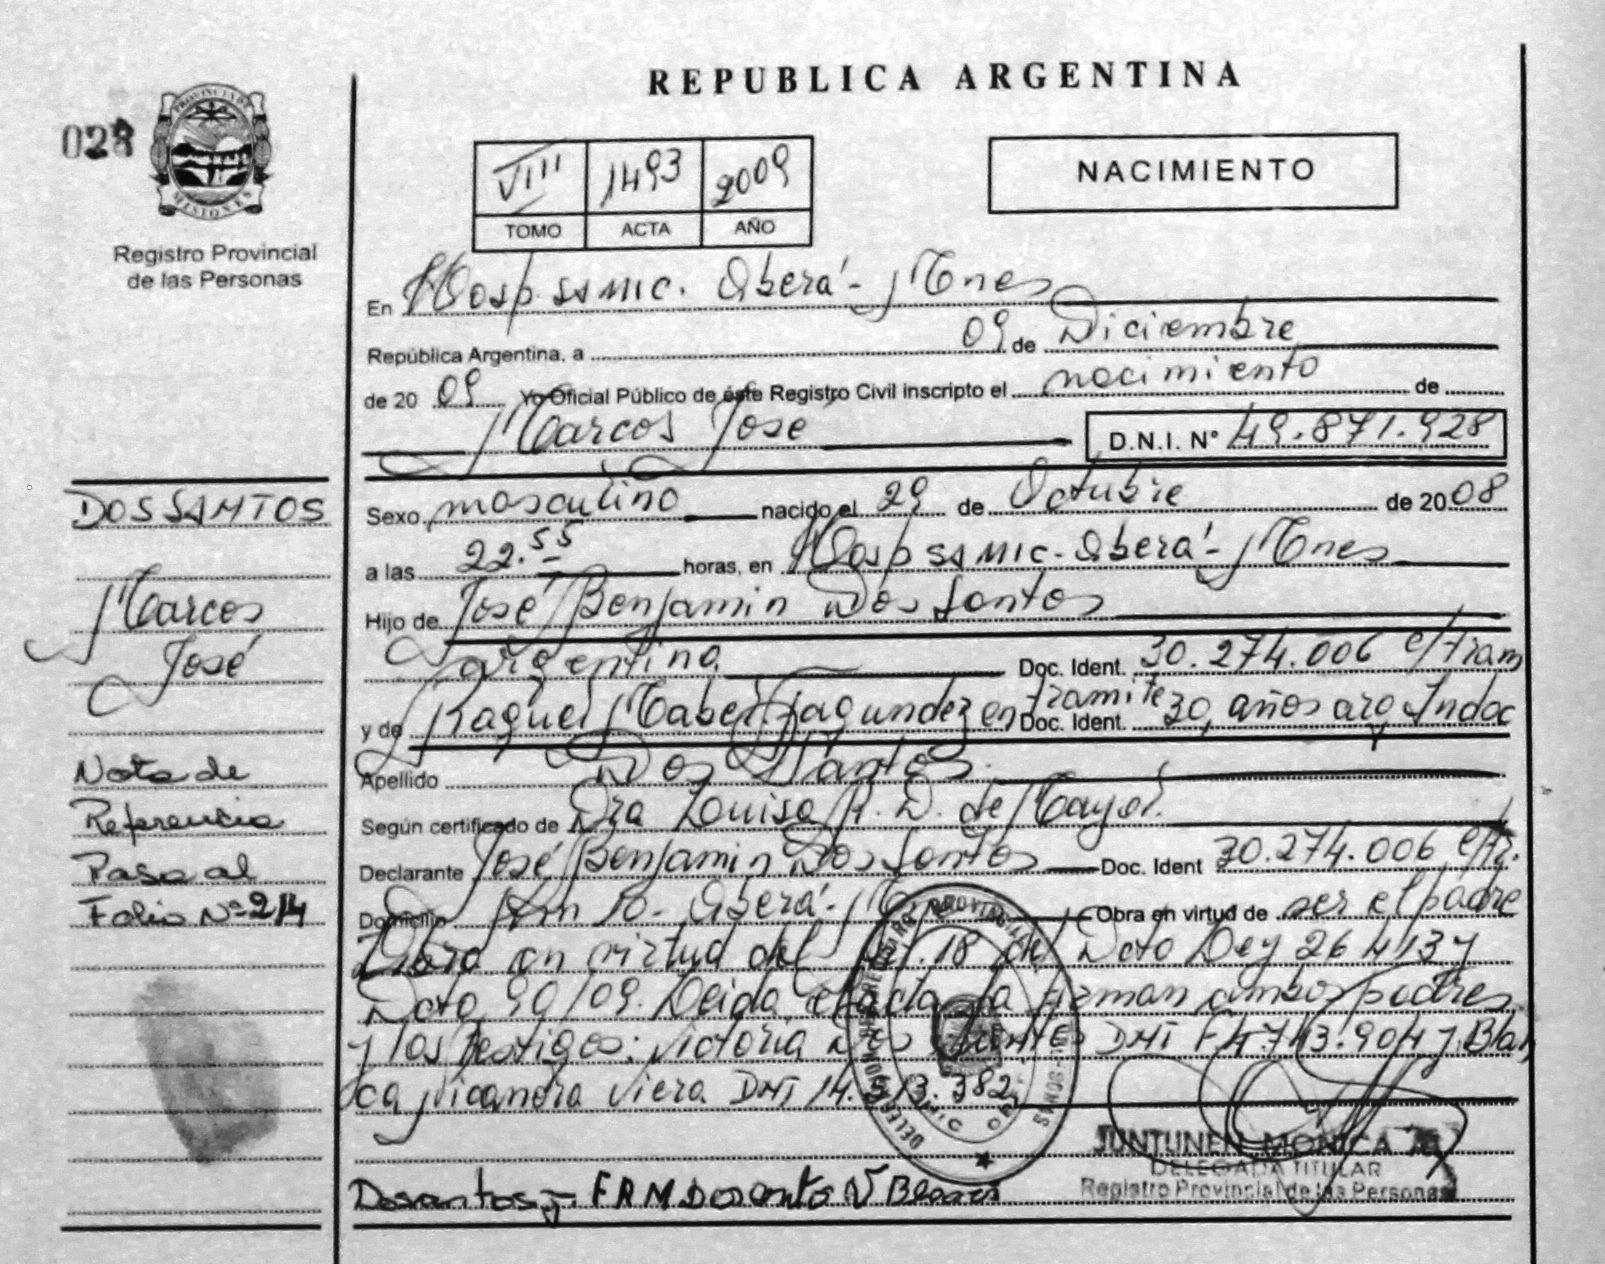 REPUBLICA ARGENTINA
028
PROVINCIA DE
MISIONES
Registro Provincial
de las Personas
VIII 1493 2009
TOMO ACTA AÑO
NACIMIENTO
En Hosp. SSMIC. Oberá - Mnes
República Argentina, a 09 de Diciembre
de 20 09 Yo Oficial Público de éste Registro Civil inscripto el nacimiento de
Marcos José D.N.I. Nº 49.871.928
DOS SANTOS
Marcos
José
Nota de
Referencia
Pasa al
Folio Nº 214
Sexo masculino nacido el 29 de Octubre de 20 08
a las 22.55 horas, en Hosp SSMIC - Oberá - Mnes
Hijo de José Benjamin Dos Santos
argentino Doc. Ident. 30.274.006 e/tram
y de Raquel Mabel Fagundez en tramite Doc. Ident. 30 años arg Indoc
Apellido Dos Santos
Según certificado de Dra Louisa R. D. de Mayol.
Declarante José Benjamin Dos Santos Doc. Ident 30.274.006 e/tr.
Domicilio Km 10 - Oberá - Obra en virtud de ser el padre
Obra en virtud del 18 del Dcto Ley 26413 y
Dcto 90/09. Leida el acta la firman ambos padres
y los testigos: Victoria Dos Santos DNI F4.743.904 y Blan
ca Nicanora Viera DNI 14. 382
JUNTUNEN, MONICA
DELEGADA TITULAR
Registro Provincial de las Personas